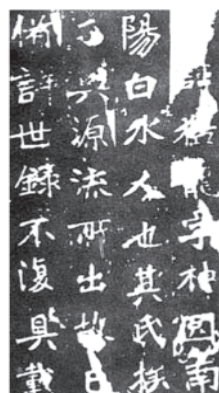 諱猛龍字神冏南
陽白水人也其氏族
興源流所出故已
備詳世錄不復具載